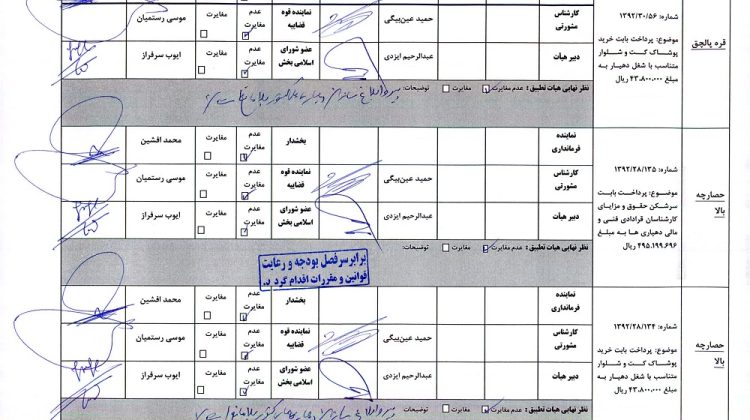 قره بالجق
شماره: ۱۳۹۲/۳۰/۵۶
موضوع: پرداخت بابت خرید
پوشاک کت و شلوار
متناسب با شغل دهیار به
مبلغ ۴۳،۸۰۰،۰۰۰ ریال
کارشناس
مشورتی
حمید عین‌بیگی
نماینده قوه
قضاییه
عدم
مغایرت
مغایرت
موسی رستمیان
دبیر هیات
عبدالرحیم ایزدی
عضو شورای
اسلامی بخش
عدم
مغایرت
مغایرت
ایوب سرفراز
نظر نهایی هیات تطبیق: عدم مغایرت مغایرت توضیحات:
حصارچه
بالا
شماره: ۱۳۹۲/۲۸/۱۳۵
موضوع: پرداخت بابت
سرشکن حقوق و مزایای
کارشناسان قرادادی فنی و
مالی دهیاری ها به مبلغ
۴۹۵،۱۹۹،۶۹۶ ریال
نماینده
فرمانداری
بخشدار
عدم
مغایرت
مغایرت
محمد افشین
کارشناس
مشورتی
حمید عین‌بیگی
نماینده قوه
قضاییه
عدم
مغایرت
مغایرت
موسی رستمیان
دبیر هیات
عبدالرحیم ایزدی
عضو شورای
اسلامی بخش
عدم
مغایرت
مغایرت
ایوب سرفراز
نظر نهایی هیات تطبیق: عدم مغایرت مغایرت توضیحات:
برابر سرفصل بودجه و رعایت
قوانین و مقررات اقدام گردید.
حصارچه
بالا
شماره: ۱۳۹۲/۲۸/۱۳۴
موضوع: پرداخت بابت خرید
پوشاک کت و شلوار
متناسب با شغل دهیار به
نماینده
فرمانداری
بخشدار
عدم
مغایرت
مغایرت
محمد افشین
کارشناس
مشورتی
حمید عین‌بیگی
نماینده قوه
قضاییه
عدم
مغایرت
مغایرت
موسی رستمیان
دبیر هیات
عبدالرحیم ایزدی
عضو شورای
اسلامی بخش
عدم
مغایرت
مغایرت
ایوب سرفراز
نظر نهایی هیات تطبیق: عدم مغایرت مغایرت توضیحات: